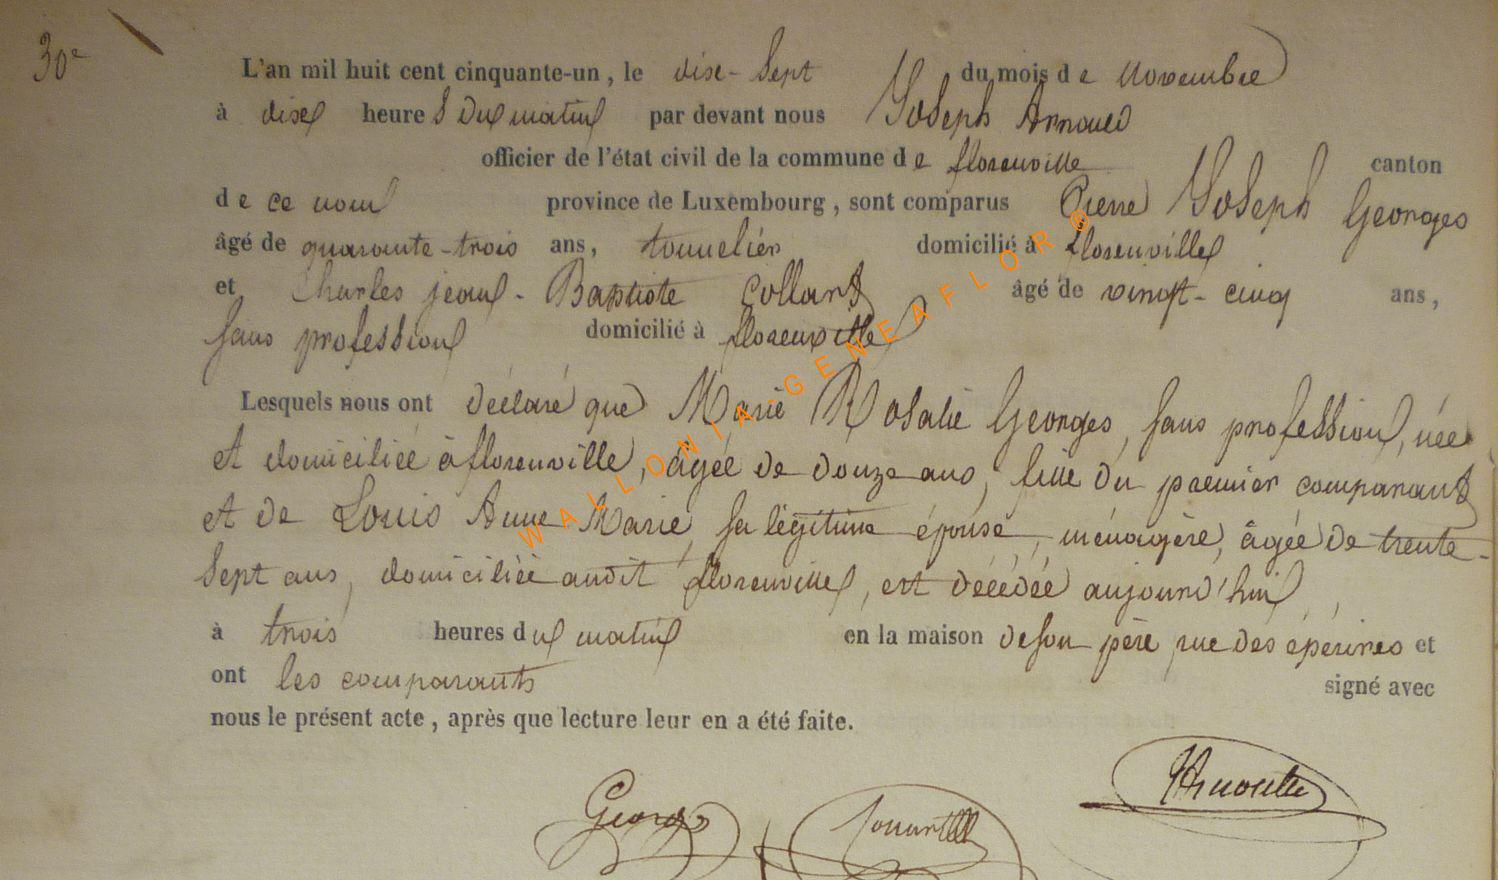 30e
L'an mil huit cent cinquante-un, le dix-sept du mois de novembre
à dix heures du matin par devant nous Joseph Arnould
officier de l'état civil de la commune de florenville canton
de ce nom province de Luxembourg, sont comparus Pierre Joseph Georges
âgé de quarante-trois ans, tonnelier domicilié à florenville
et Charles jean-Baptiste Collard âgé de vingt-cinq ans,
sans profession domicilié à florenville
Lesquels nous ont déclaré que Marie Rosalie Georges, sans profession, née
et domiciliée à florenville, âgée de douze ans, fille du premier comparant
et de Louis Anne Marie, sa légitime épouse, ménagère, âgée de trente-
sept ans, domiciliée audit florenville, est décédée aujourd'hui,
à trois heures du matin en la maison de son père rue des épérires et
ont les comparants signé avec
nous le présent acte, après que lecture leur en a été faite.
Georges
WALLONIA-GENEAFLOR®